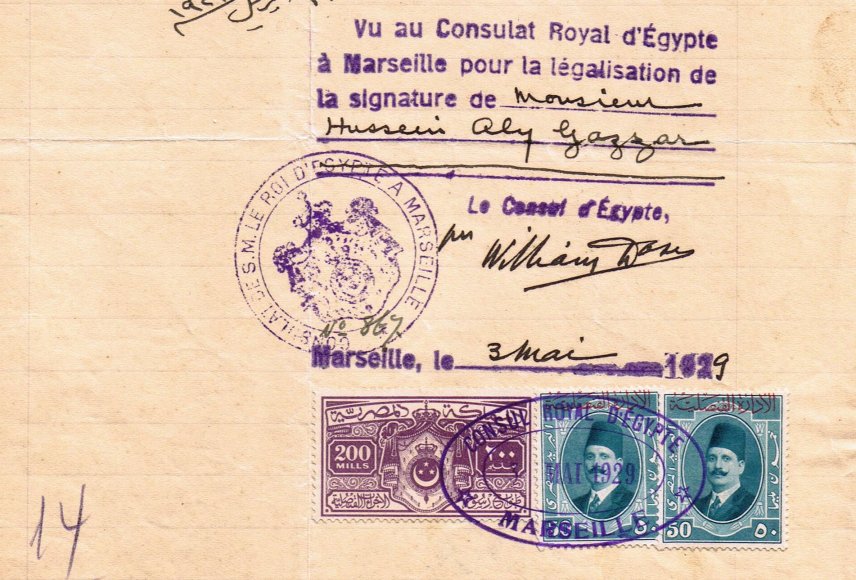 Vu au Consulat Royal d'Égypte
à Marseille pour la légalisation de
la signature de Monsieur
Hussein Aly Gazzar
CONSULAT DE S.M. LE ROI D'EGYPTE A MARSEILLE
Le Consul d'Égypte,
William
No 867
Marseille, le 3 Mai 1929
200
MILLS
CONSUL ROYAL D'ÉGYPTE
MAI 1929
MARSEILLE
50 ٥٠
50 ٥٠
14